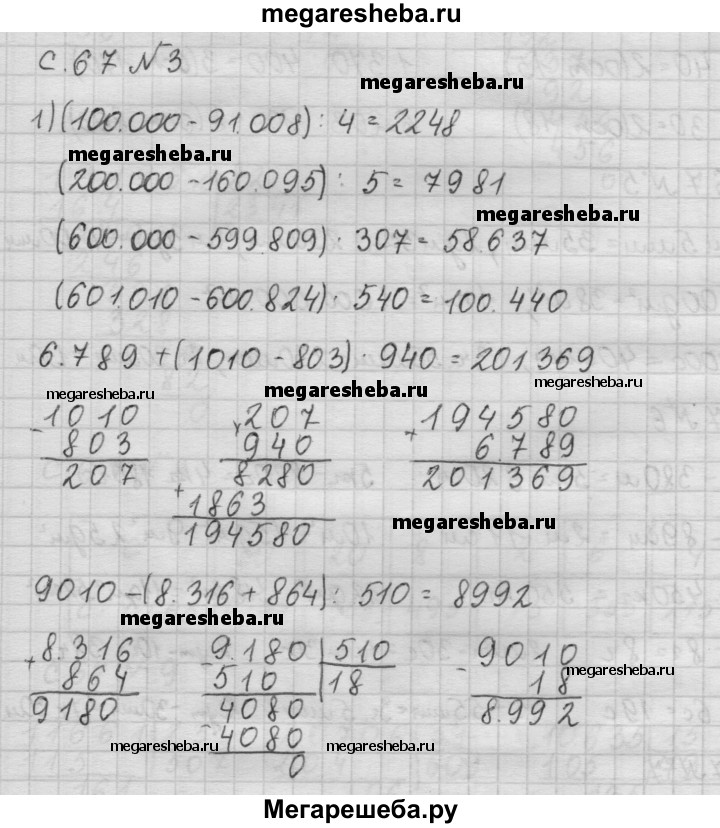 megaresheba.ru
с.67 №3
megaresheba.ru
1) (100.000 - 91.008) : 4 = 2248
megaresheba.ru
(200.000 - 160.095) : 5 = 7981
megaresheba.ru
(600.000 - 599.809) · 307 = 58.637
(601.010 - 600.824) · 540 = 100.440
6.789 + (1010 - 803) · 940 = 201369
megaresheba.ru
megaresheba.ru
megaresheba.ru
- 1010 × 207 + 194580
803 940 6.789
207 8280 201369
+ 1863
megaresheba.ru
194580
9010 - (8.316 + 864) : 510 = 8992
megaresheba.ru
+ 8.316 - 9.180 510 - 9010
megaresheba.ru
864 510 18 18
9180 4080 8.992
- 4080
megaresheba.ru
megaresheba.ru
megaresheba.ru
0
Мегарешеба.ру